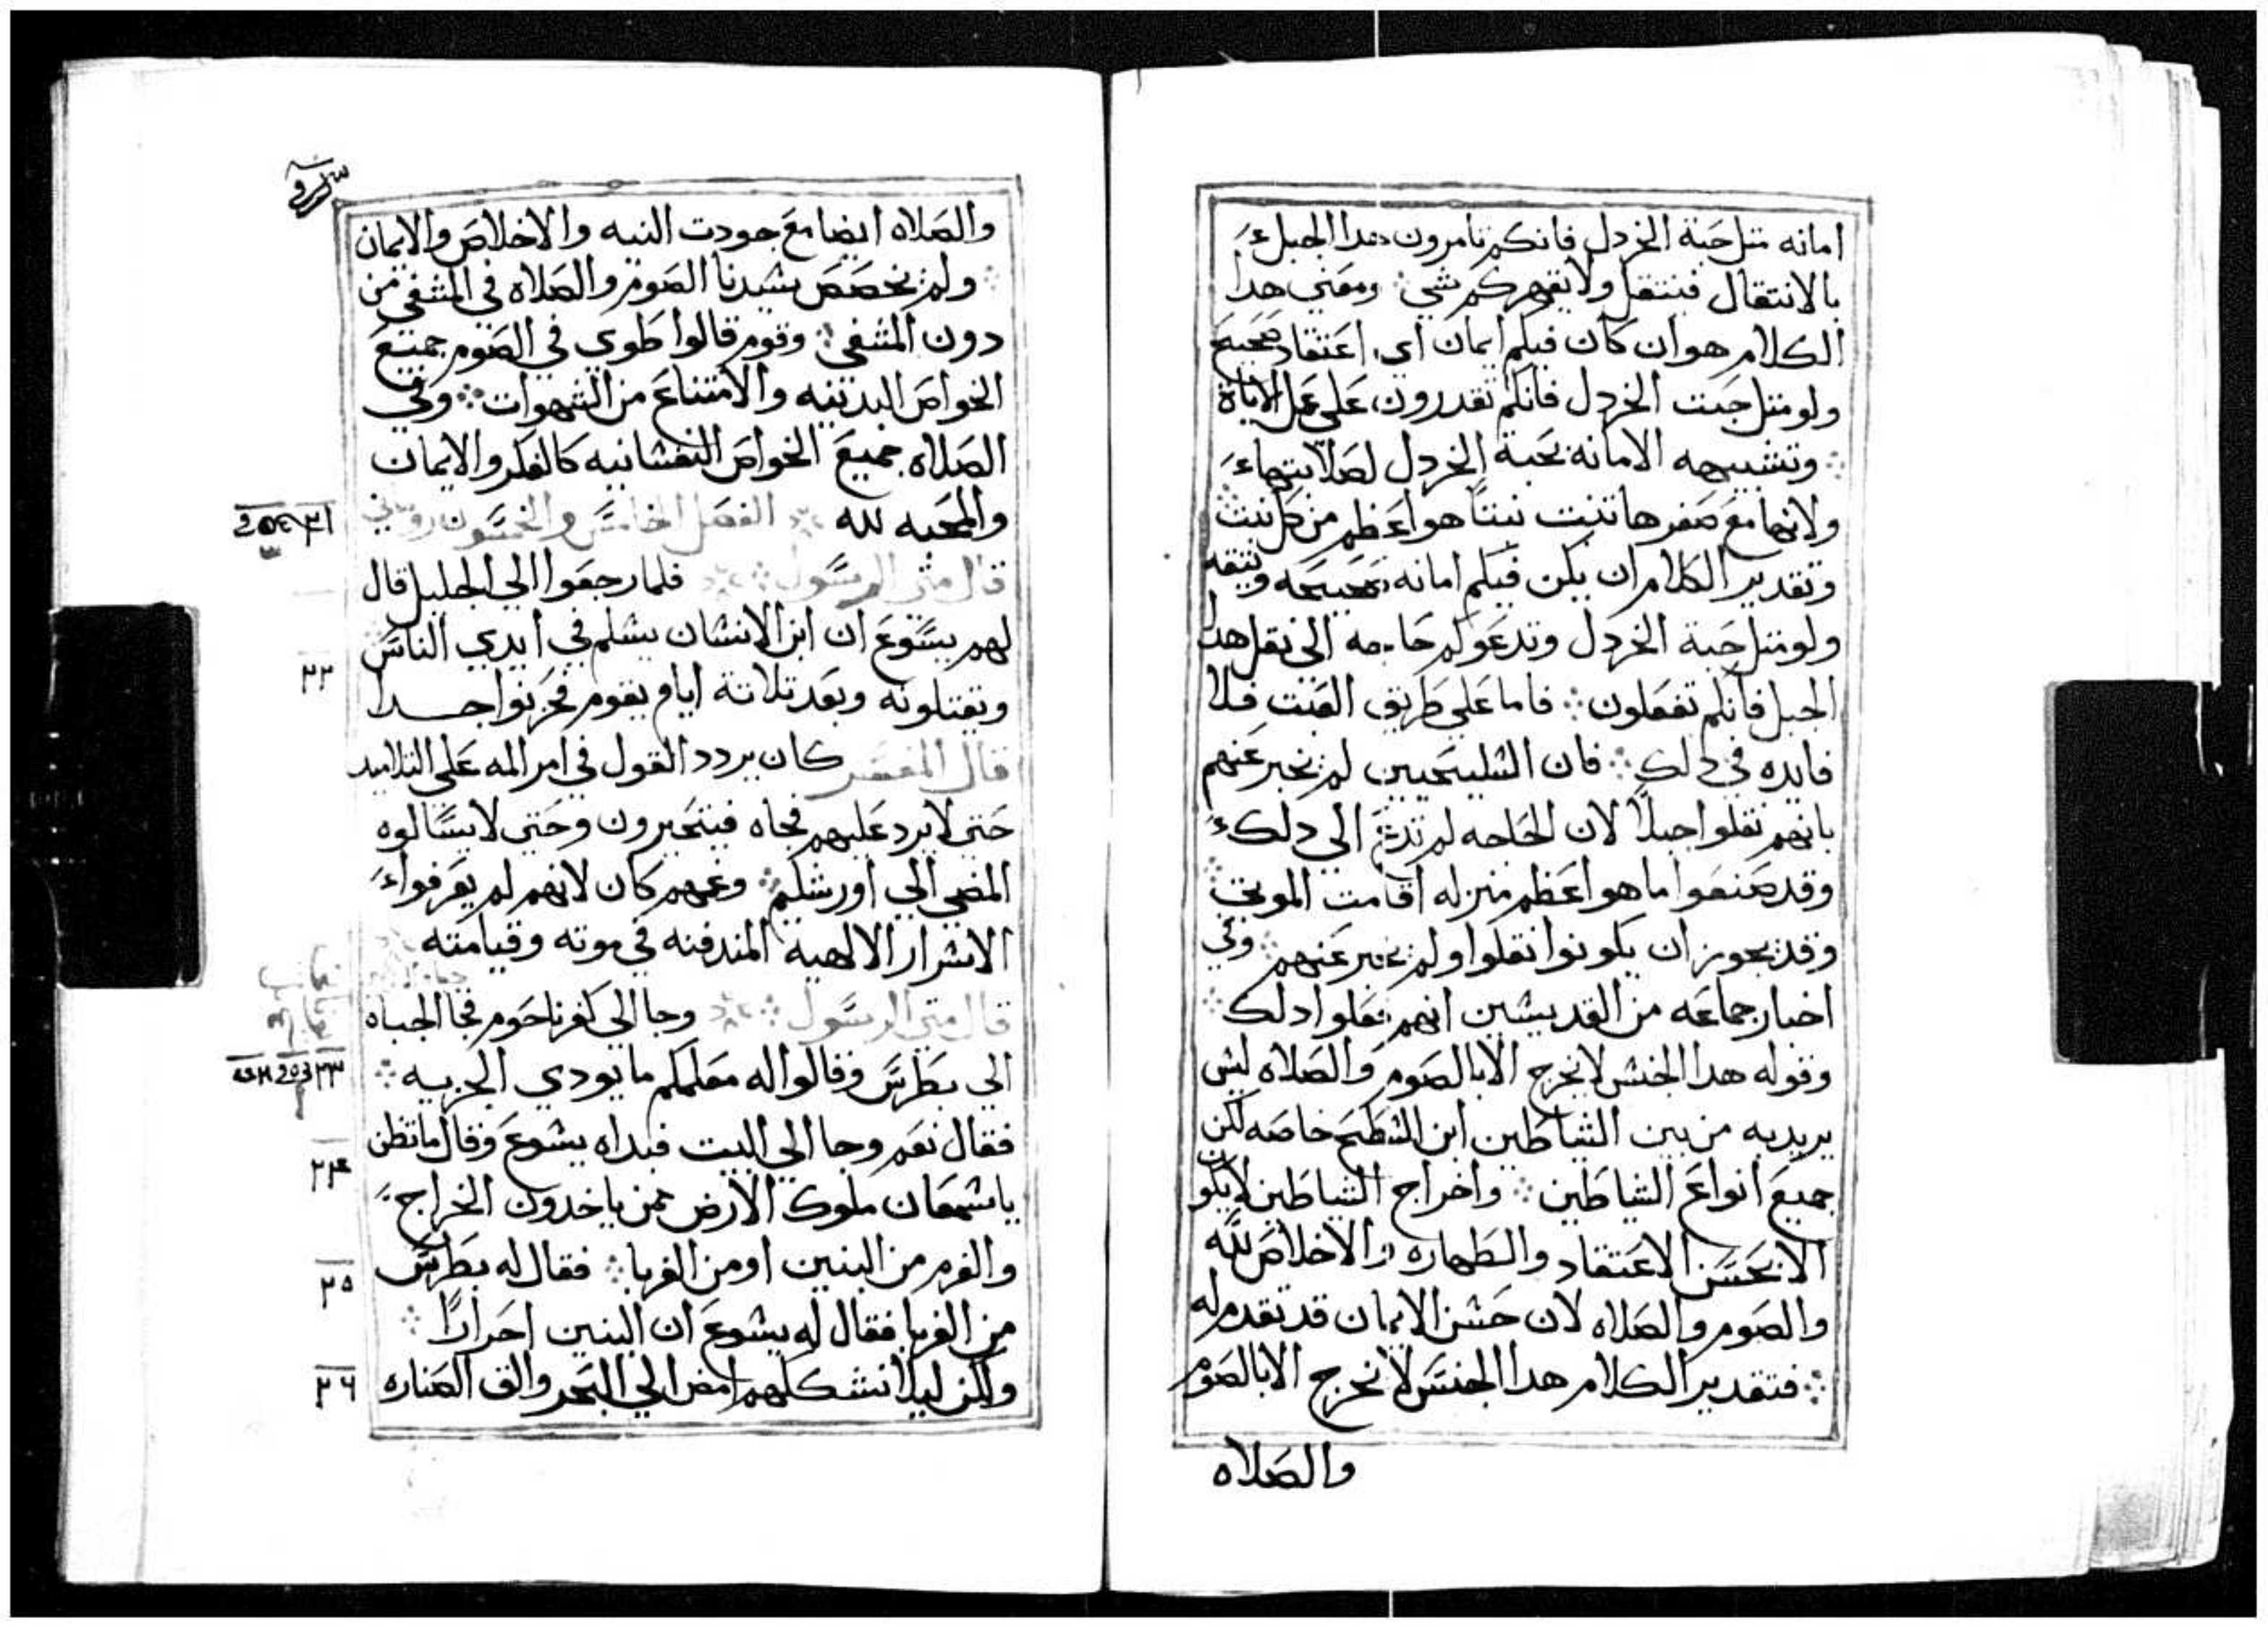 امانه متل حبة الخردل فانكم تامرون هدا الجبل
بالانتقال فينتقل ولا يقهركم شي ومعني هدا
الكلام هو ان كان فيكم ايمان اي اعتقاد صحيح
ولو متل حبت الخردل فانكم تقدرون علي عمل الاياة
وتشبيهه الامانه بحبة الخردل لصلابتها
ولانها مع صغرها تنبت نبتًا هو اعظم من كل نبت
وتقدير الكلام ان يكن فيكم امانه صحيحه وتيقه
ولو متل حبة الخردل وتدعوكم حاجه الي نقل هدا
الجبل فانكم تفعلون فاما علي طريق العبت فلا
فايده في دلك فان السليحيين لم نخبر عنهم
بانهم نقلوا جبلاً لان الحاجه لم تدع الي دلك
وقد صنعوا ما هو اعظم منزله اقامت الموتي
وقد يجوز ان يكونوا نقلوا ولم نخبر عنهم وفي
اخبار جماعه من القديسين انهم فعلوا دلك
وقوله هدا الجنس لا يخرج الا بالصوم والصلاه ليس
يريد به من بين الشياطين ابن السطح خاصه لكن
جميع انواع الشياطين واخراج الشياطين لا يكون
الا بحسن الاعتقاد والطهاره والاخلاص لله
والصوم والصلاه لان حسن الايمان قد تقدم له
فتقدير الكلام هدا الجنس لا يخرج الا بالصوم
والصلاه
والصلاه ايضا مع جودت النيه والاخلاص والايمان
ولم يخصص سيدنا الصوم والصلاه في المشفي من
دون المشفي وقوم قالوا طوي في الصوم جميع
الخواص البدنيه والامتناع من الشهوات وفي
الصلاه جميع الخواص النفسانيه كالفكر والايمان
والمحبه لله الفصل الخامس والخمسون
قال متي الرسول فلما رجعوا الي الجليل قال
لهم يسوع ان ابن الانسان يسلم في ايدي الناس
٢٢
ويقتلونه وبعد تلاتة ايام يقوم فحزنوا جدا
قال المفسر كان يردد القول في امر المه علي التلاميد
حتي لا يرد عليهم فجاه فيتحيرون وحتي لا يسالوه
المضي الي اورشلم وغمهم كان لانهم لم يعرفوا
الاسرار الالهية المندفنه في موته وقيامته
قال متي الرسول وجا الي كفرناحوم فجا الجباه
٢٣
الي بطرس وقالوا له معلمكم ما يودي الجزيه
فقال نعم وجا الي البيت فبداه يسوع وقال ما تظن
٢٤
يا سمعان ملوك الارض ممن ياخدون الخراج
والغرم من البنين او من الغربا فقال له بطرس
٢٥
من الغربا فقال له يسوع ان البنين احرارًا
ولكن ليلا نشككهم امض الي البحر والق الصناره
٢٦